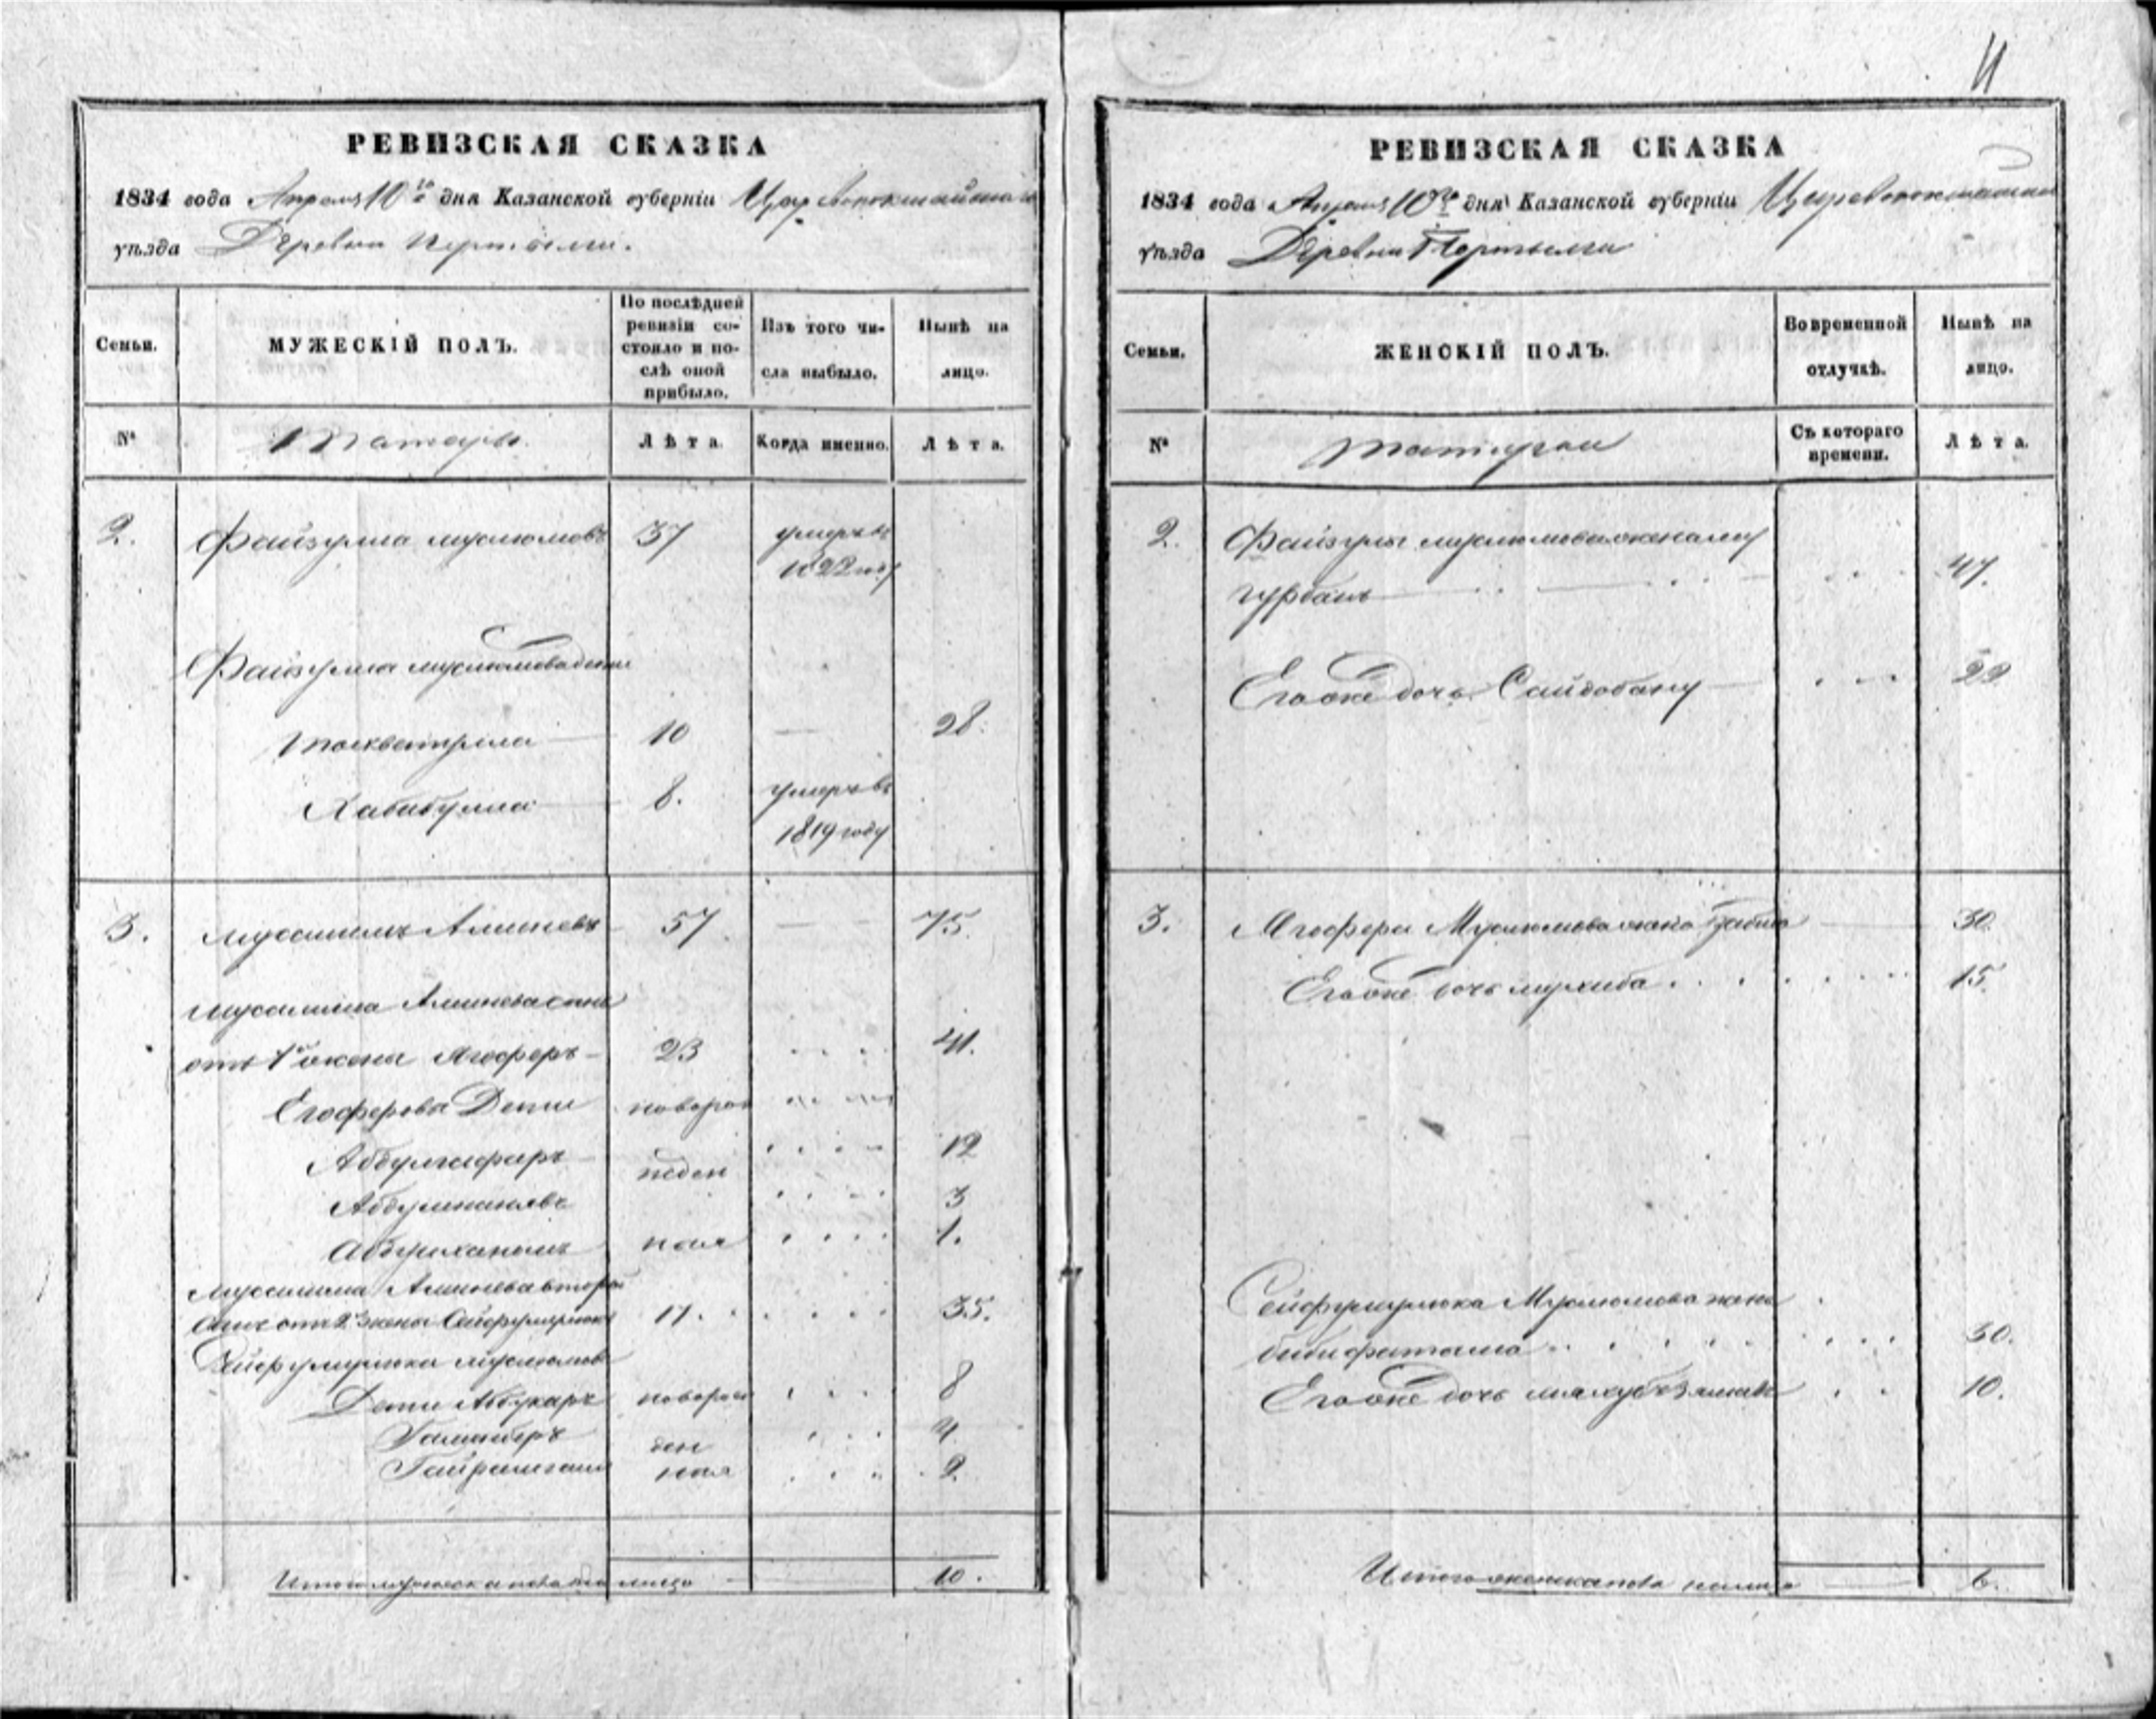 11
РЕВИЗСКАЯ СКАЗКА
1834 года Апреля 10го дня Казанской губерніи Царевококшайскаго
уѣзда Деревни Пертылги.
Семьи.
МУЖЕСКІЙ ПОЛЪ.
По послѣдней ревизіи состояло и послѣ оной прибыло.
Изъ того числа выбыло.
Нынѣ на лицо.
№
Татары.
Лѣта.
Когда именно.
Лѣта.
2. Файзулла Муслюмовъ 37 умеръ въ
1822 году
Файзулла Муслюмова дети
10 — 28.
Хабибулла 8. умеръ въ
1819 году
3. Муслимъ Алинеевъ 57 — 75.
Муслима Алинеева сынъ
отъ 1й жены Ягоферъ 23 41.
Егоферова Дети новорож
Абдулгафаръ 12
ժден
3
ная 1.
Муслима Алинеева второй
сынъ отъ 2й жены Сейфулмулюкъ 17. 35.
Сейфулмулюка Муслюмова
Дети Абукаръ новорож 8
ден 4
ная 2.
Итого мужеска пола на лицо 10.
РЕВИЗСКАЯ СКАЗКА
1834 года Апреля 10го дня Казанской губерніи Царевококшайскаго
уѣзда Деревни Пертылги
Семьи.
ЖЕНСКІЙ ПОЛЪ.
Во временной отлучкѣ.
Нынѣ на лицо.
№
Татарки
Съ котораго времени.
Лѣта.
2. Файзулы Муслюмова жена
47.
Его же дочь Сайдобану 22
3. Ягофера Муслюмова жена 30.
Его же дочь 15.
Сейфулмулюка Муслюмова жена
бибифатыма 30.
Его же дочь 10.
Итого женска пола на лицо 6.